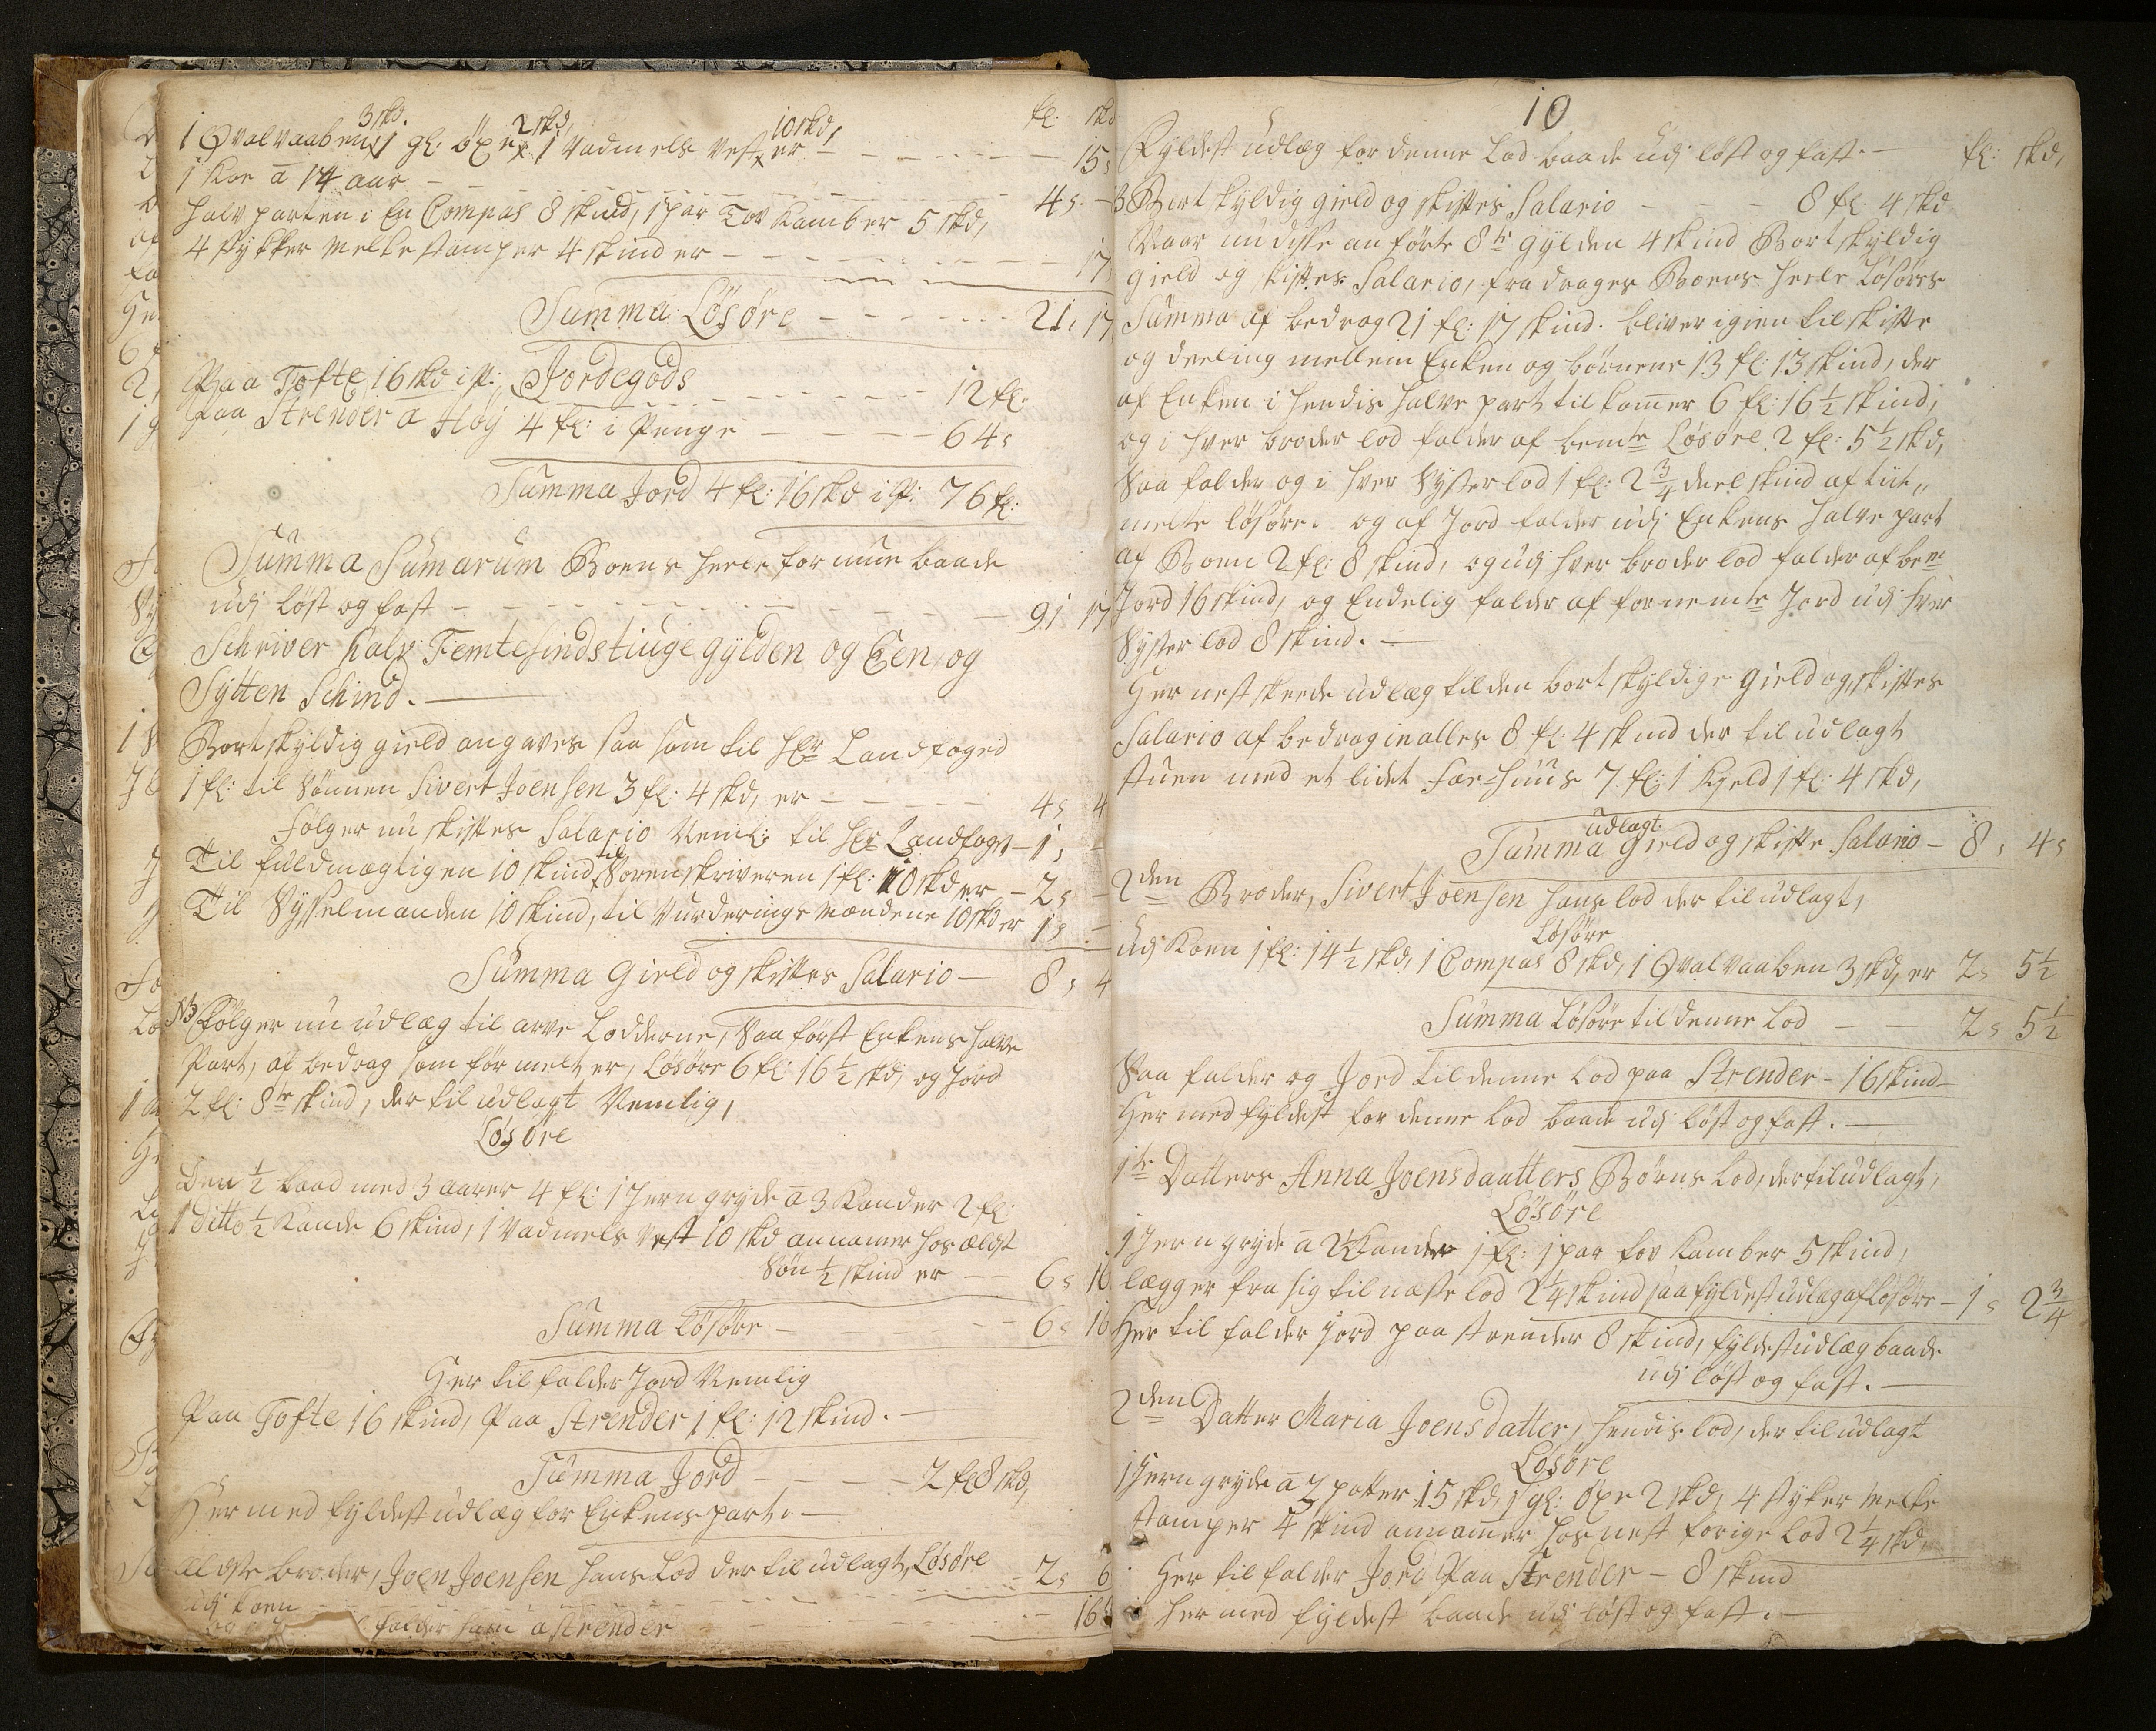 3 skd. 2 skd, 10 skd, fl: skd
1 Qvalvaaben, 1 gl: öxe, 1 Vadmels Vest er — 15,
1 Koe a 14 aar — 4 s. —
Halv parten i En Compas 8 skind, 1 par Tov Kamber 5 skd,
4 stykker Melkestamper 4 skinder — 17,
Summa Løsøre — 21, 17
Jordegods
Paa Tofte 16 skd i st: — 12 fl:
Paa Strender a Høy 4 fl: i Penge — 64 s
Summa Jord 4 fl: 16 skd i st: 76 fl:
Summa Sumarum Boens heele formue baade
udj løst og fast — 91 17
Schriver halv Femtesindstiuge gylden og Een, og
Sÿtten Schind. —
Bortskyldig gield angaves saa som til Hr Landfoged
1 fl: til Sönnen Sivert Joensen 3 fl: 4 skd, er — 4 s 4
Følger nu skiftes Salario Neml: til Hr Landfogd — 1,
Til fuldmægtigen 10 skind, til Sorenskriveren 1 fl: 10 skd er — 2 s
Til Sysselmanden 10 skind, til Vurderings Mændene 10 skd er 1 s
Summa Gield og skiftes Salario — 8, 4
NB Følger nu udlæg til arve Lodderne, Saa først Enkens halve
Part, af bedrag som før melt er, Løsøre 6 fl: 16 1/2 skd, og Jord
2 fl: 8te skind, der til udlagt Nemlig,
Løsøre
Den 1/2 baad med 3 aarer 4 fl: 1 Jern gryde a 3 Kander 2 fl:
1 ditto 1/2 Kande 6 skind, 1 Vadmels Vest 10 skd annamer hos ældst
Søn 1/2 skind er — 6 s 16
Summa Løsøre — 6 s 16
Her til falder Jord Nemlig
Paa Tofte 16 skind, Paa Strender 1 fl: 12 skind. —
Summa Jord — 2 fl 8 skd,
Her med fyldest udlæg for Enkens part. —
Ældste broder, Joen Joensen hans Lod der til udlagt, Løsøre
udj koen — 2 s 6
falder ham a Strender — 16
10
Fyldest udlæg for denne Lod baade udj løst og fast. — fl: skd,
NB Bortskyldig gield og skiftes Salario — 8 fl: 4 skd
Naar nu disse anførte 8te gylden 4 skind Bortskyldig
gield og skiftes Salario, fra drages Boens heele Løsøres
Summa af bedrag 21 fl: 17 skind. bliver igien til skifte
og deeling mellem Enken og börnene 13 fl: 13 skind, der
af Enken i hendis halve part tilkomer 6 fl: 16 1/2 skind,
og i hver broder lod falder af bemte Løsøre 2 fl: 5 1/2 skd,
Saa falder og i hver Syster lod 1 fl: 2 3/4 deel skind af tiit„
melte løsøre. og af Jord falder udj Enkens halve part
af Boen 2 fl: 8 skind, og udj hver broder lod falder af bemte
Jord 16 skind, og Endelig falder af fornemte Jord udj hver
Syster lod 8 skind. —
Her nest skeede udlæg til den bortskyldige gield og skiftes
Salario af bedrag in alles 8 fl: 4 skind der til udlagt
stuen med et lidet Fæ-huus 7 fl: 1 Kjeld 1 fl: 4 skd,
Summa udlagt gield og skifte Salario — 8, 4 s
2den Broder, Sivert Joensen hans lod der til udlagt,
Løsøre
Udj Koen 1 fl: 14 1/2 skd, 1 Compas 8 skd, 1 Qvalvaaben 3 skd, er 2 s 5 1/2
Summa Løsøre til denne Lod — 2 s 5 1/2
Saa falder og Jord til denne Lod paa Strender - 16 skind —
Her med fyldest for denne Lod baade udj løst og fast. —
1te Datters Anna Joensdautters Børns Lod, der til udlagt,
Løsøre
1 Jern gryde a 2 1/2 Kander 1 fl: 1 par Tov Kamber 5 skind,
lægger fra sig til næste lod 2 1/4 skind saa fyldest udlæg af Løsøre — 1 s 2 3/4
Her til falder jord paa Strender 8 skind, fyldest udlæg baade
udj løst og fast. —
2den Datter Maria Joensdatter, hendis lod, der til udlagt
Løsøre
1 Jern gryde a 7 potter 15 skd, 1 gl: öxe 2 skd, 4 styker Melke
stamper 4 skind annamer hos nest forige lod 2 1/4 skd,
Her til falder Jord Paa Strender — 8 skind
her med fyldest baade udj løst og fast. —